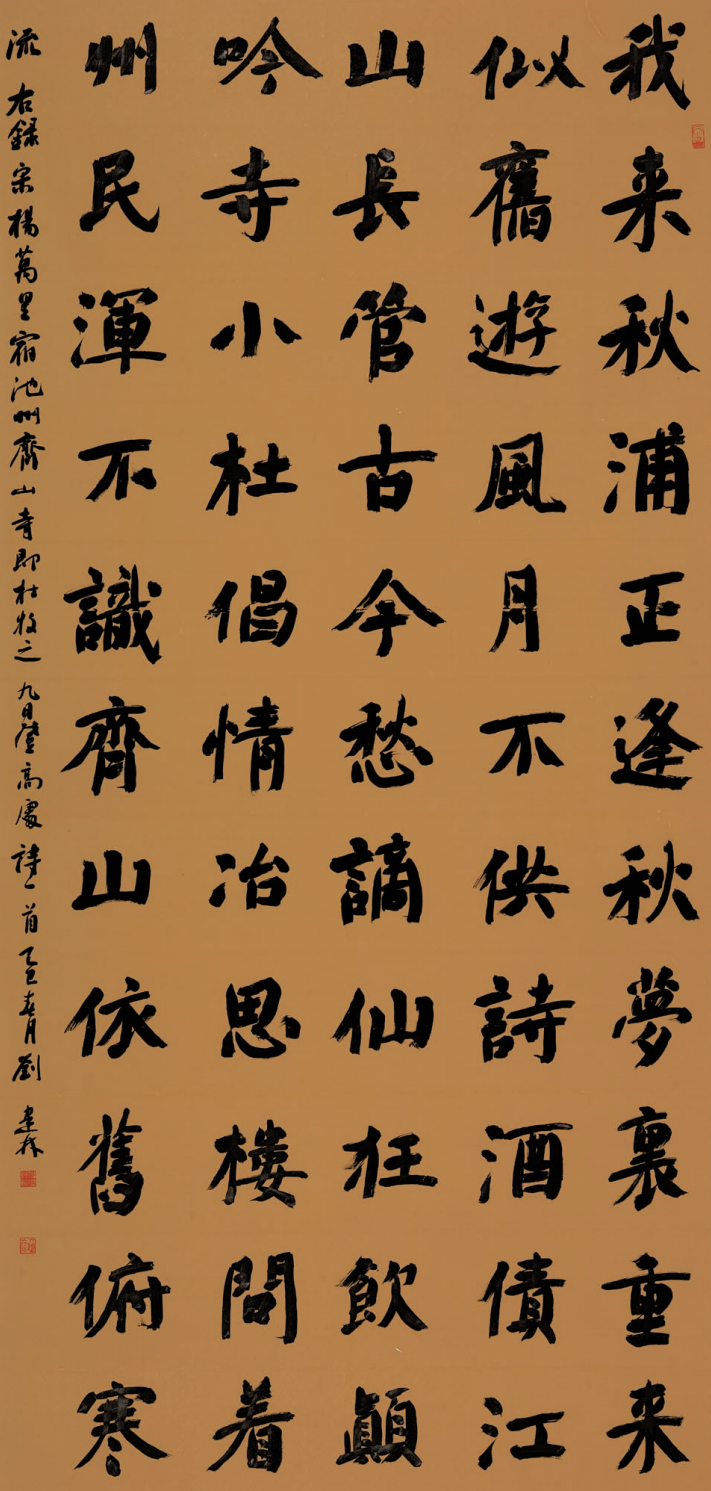 我来秋浦正逢秋夢裏重来
似舊遊風月不供詩酒債江
山長管古今愁謫仙狂飲顛
吟寺小杜倡情冶思樓問着
州民渾不識齊山依舊俯寒
流 右錄宋楊萬里宿池州齊山寺即杜牧之九日登高處詩一首乙巳春月劉建林